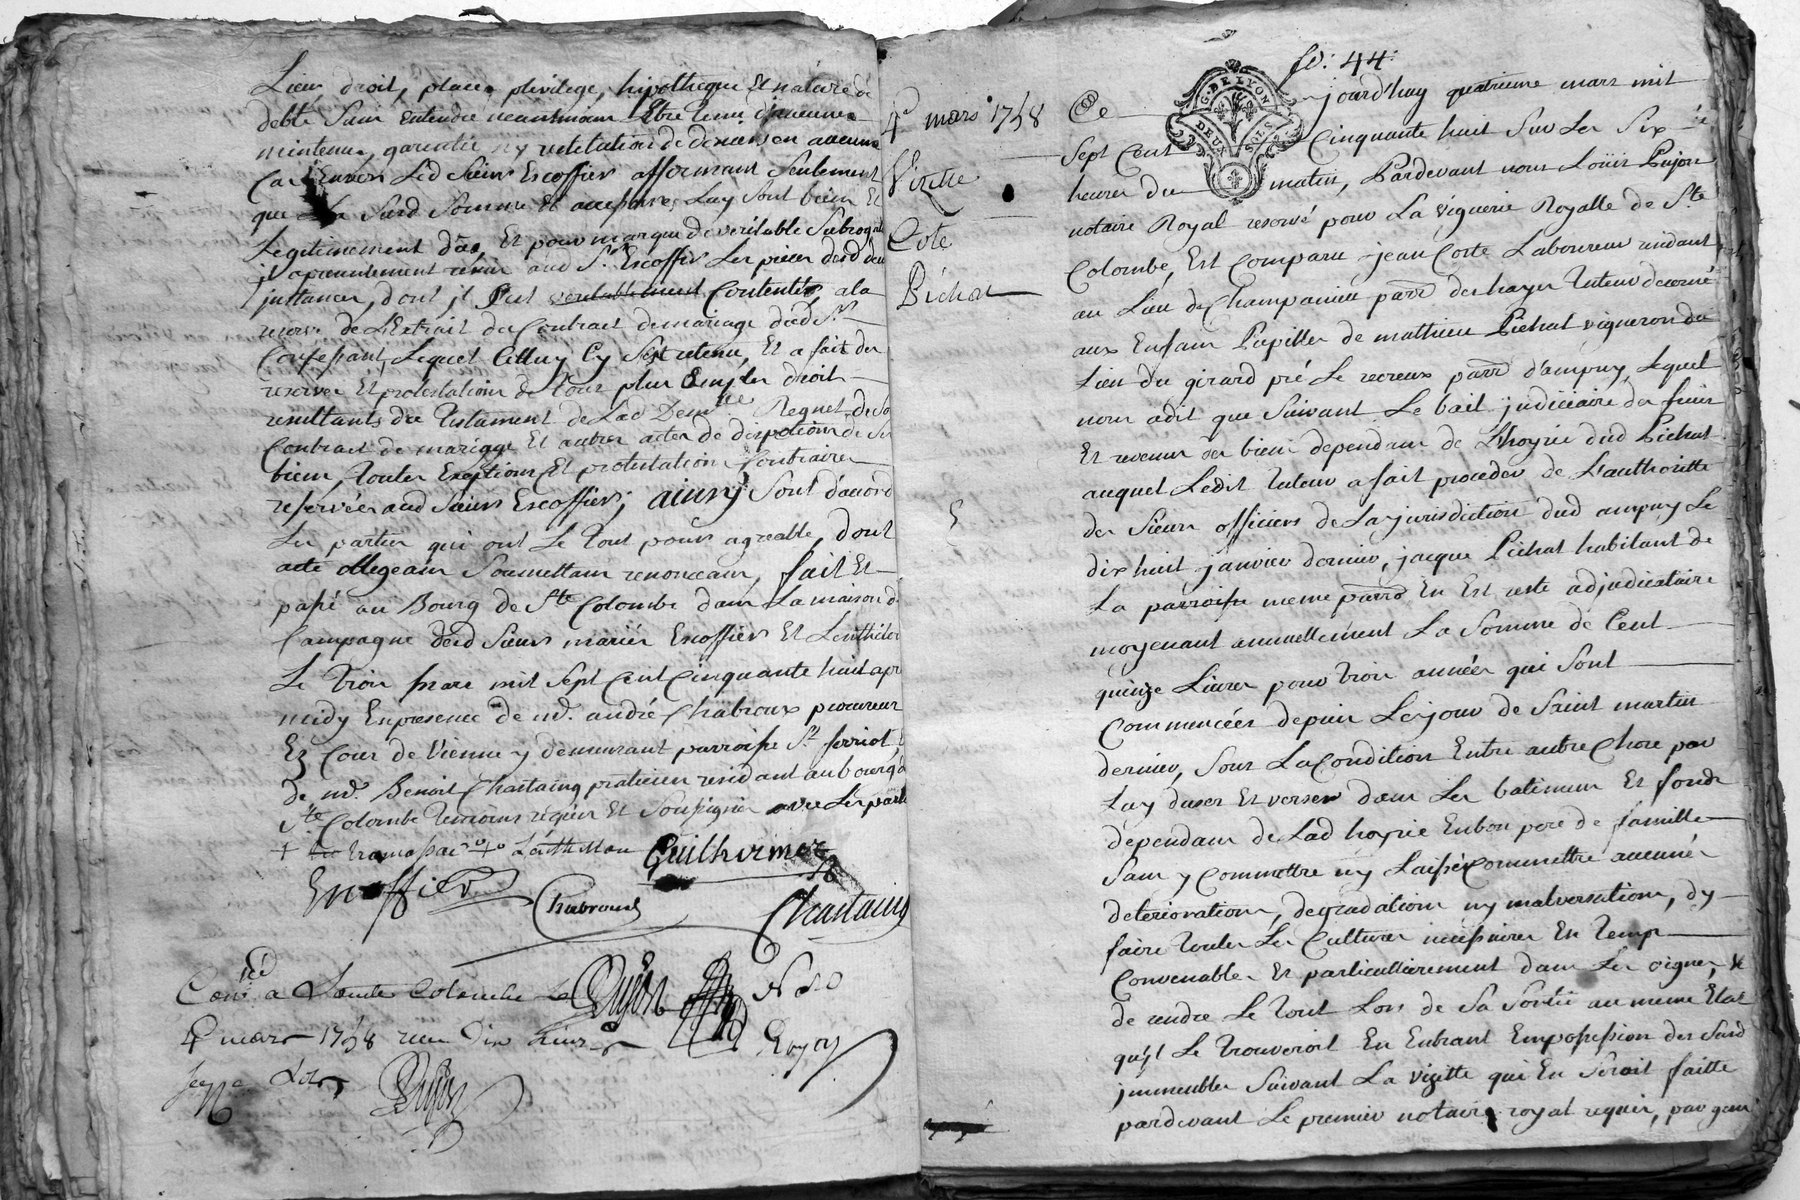 Lieu, droit, place, privilege, hipotheque Et nature de
debte Sans Entendre neantmoins Etre tenu d'aucune
maintenue, garantie ny restitution de deniers en aucun
Cas Envers Led Sieurs Escoffier affirmant Seulement
que La Susd Somme Et accessoires Luy Sont bien Et
Legitimement dües, Et pour marque de veritable Subrogaõn
jl a presentement remis aud Sr Escoffier Les pieces desd deux
jnstances, dont jl S'est contenté, a la
reserve de L'Extrait du Contract de mariage dud Sr
Confessant, Lequel Celluy Cy S'est retenu, Et a fait des
reserves Et protestations de tous plus amples droits
resultants du Testament de Lad Demlle Regnet, de So
Contract de mariage Et autres actes de dispotions de Ses
biens, toutes Exeptions Et protestations Contraires
reservées aud Sieurs Escoffier; ainsy Sont d'acord
Les parties qui ont Le tout pour agreable, dont
acte obligeans Soumettans renonceans, fait Et
passé au Bourg de Ste Colombe dans La maison de
Campagne desd Sieurs mariés Escoffier Et
Le trois mars mil Sept Cent Cinquante huit apr
midy En presence de me. andré Chabroux procureur
Ez Cour de Vienne y demeurant parroisse St ferriol, &
de me. Benoit Chastaing praticien residant au bourg d
Ste Colombe temoins requis Et Soussignés avec Les parti
Guilhermet
Escoffier Chabroud Chastaing
Conlé a Sainte Colombe Le Pujon No Ro
4 mars 1758 reçu Dix Livres Royal
Sept s. Pujon
fo: 44:
4e mars 1758
Vizitte
Cote
Pichat
G. DE LYON
DEUX SOLS
Ce jourd'huy quatrieme mars mil
Sept Cent Cinquante huit Sur Les Six
heures du matin, Pardevant nous Loüis Pujon
notaire Royal reservé pour La viguerie Royalle de Ste
Colombe, Est Comparu jean Cotte Laboureur residant
au Lieu de Champanieu parr des hayes tuteur decerné
aux Enfans Pupilles de mathieu Pichat vigneron du
Lieu du girard pré Le recreux parr d'ampuy, Lequel
nous a dit que Suivant Le bail judiciaire des fruis
Et revenus des biens dependans de L'hoyrie dud Pichat
auquel Ledit tuteur a fait proceder de L'authoritté
des Sieurs officiers de La jurisdiction dud ampuy Le
dix huit janvier dernier, jacque Pichat habitant de
La parroisse meme parro En Est resté adjudicataire
moyenant annuellement La Somme de Cent
quinze Livres pour trois années qui Sont
Commencées depuis Le jour de Saint martin
dernier, Sous La Condition Entre autre Chose par
Luy d'user Et verser dans Les batimens Et fonds
dependans de Lad hoyrie En bon pere de famille
Sans y Commettre ny Laisser Commettre aucunes
deteriorations, degradations ny malversations, d'y
faire toutes Les Cultures necessaires En temps
Convenables Et particullierement dans Les vignes, &
de rendre Le tout Lors de Sa Sortie au meme Etat
qu'jl Le trouveroit En Entrant En possession des Susd
jmmeubles Suivant La vizitte qui En Seroit faitte
pardevant Le premier notaire royal requis, par gens